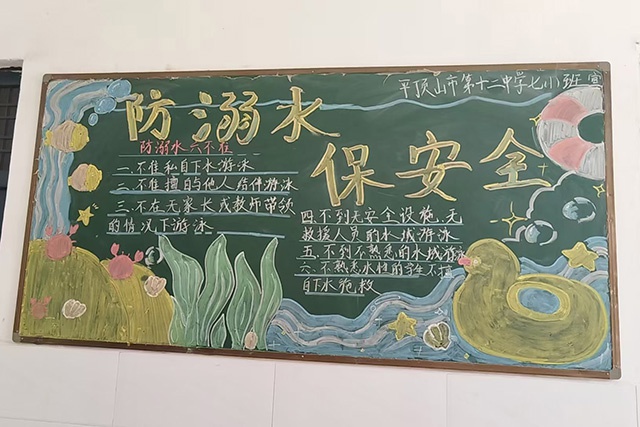 平顶山市第十二中学七小班宣
防溺水
保安全
防溺水六不准
一.不准私自下水游泳
二.不准擅自与他人结伴游泳
三.不在无家长或教师带领
的情况下游泳
四.不到无安全设施、无
救援人员的水域游泳
五.不到不熟悉的水域游泳
六.不熟悉水性的学生不擅
自下水施救